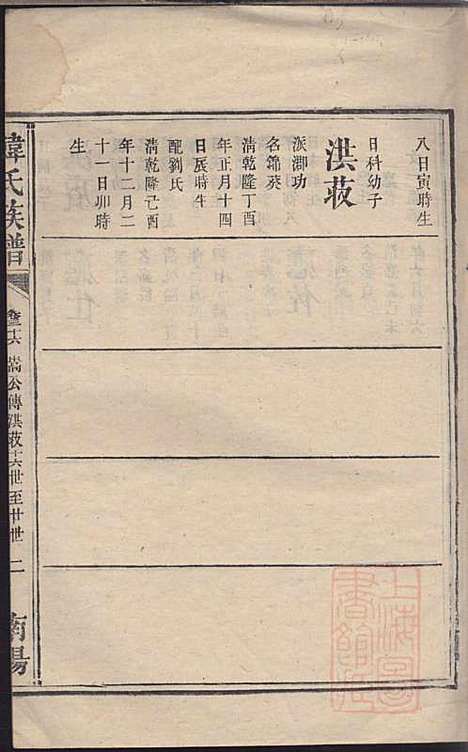 八日寅時生
洪荍
日科幼子
派溯功
名錦葵
清乾隆丁酉
年正月十四
日辰時生
配劉氏
清乾隆己酉
年十二月二
十一日卯時
生
韓氏族譜
嵩公傳洪荍十六世至廿世 二
南陽
上海圖書館藏